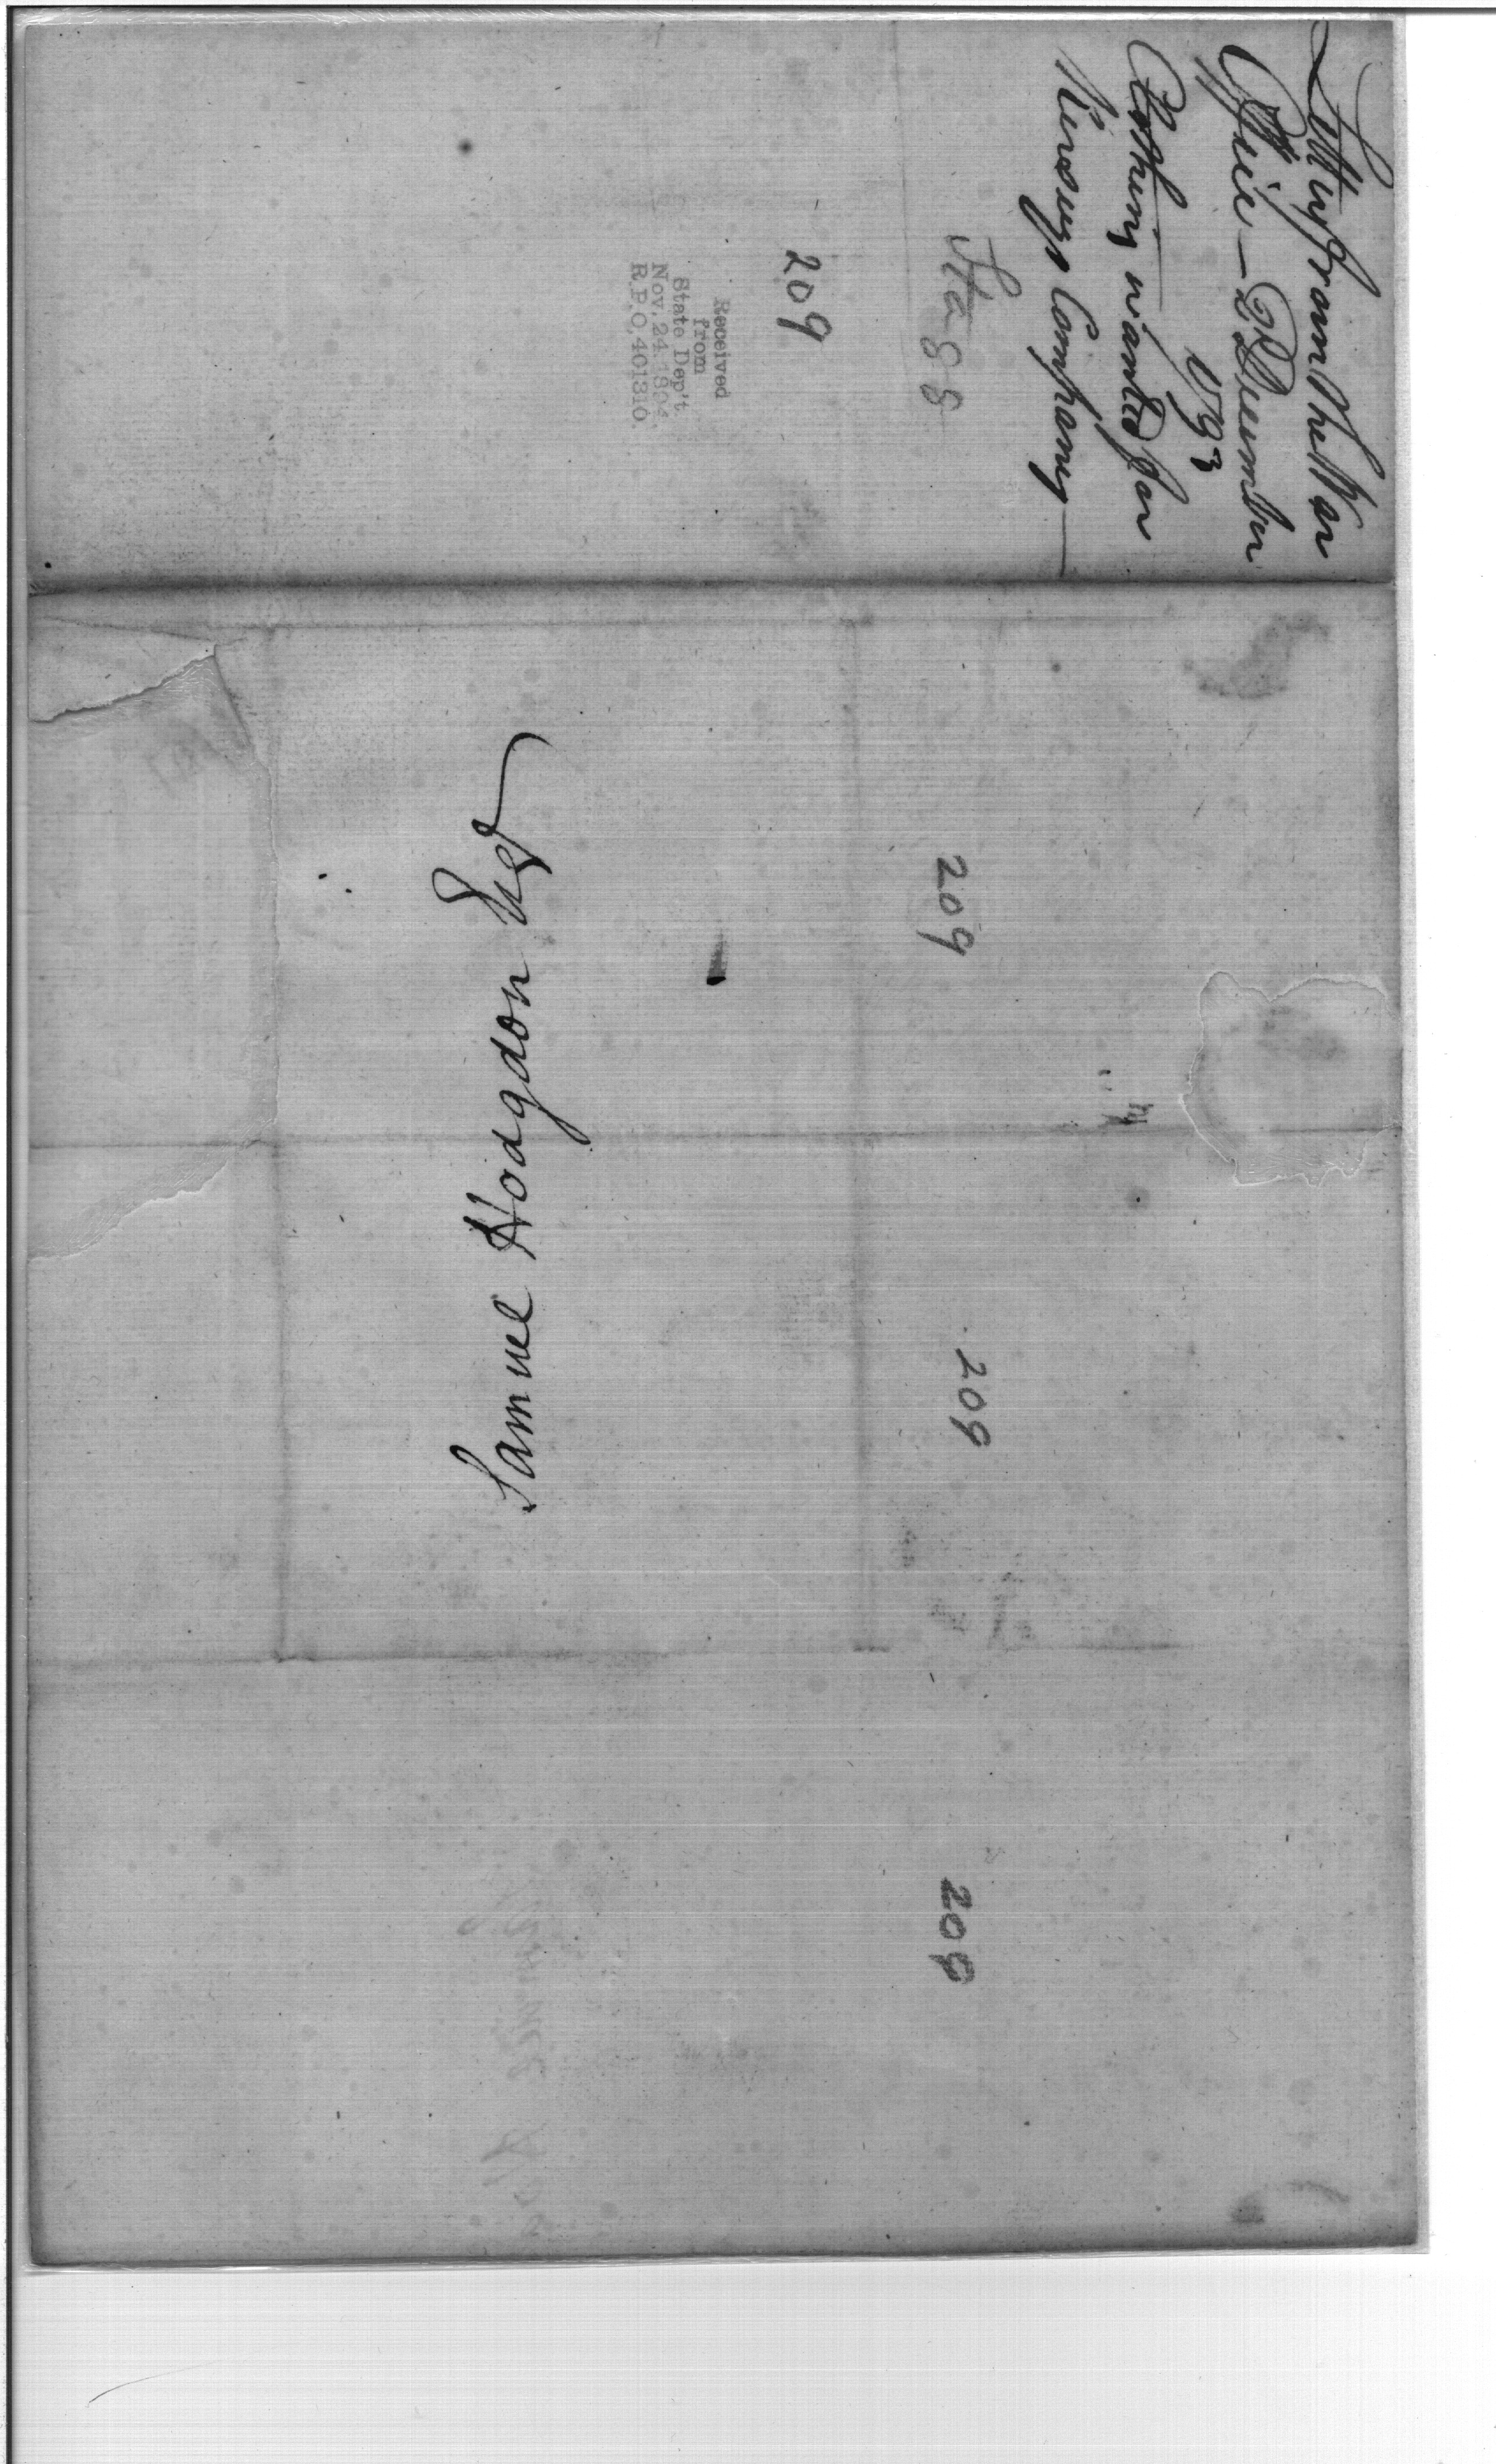 Letter from the War
Office — 2 December
1793
Clothing wanted for
Company —
Stagg
209
Received
from
State Dep't
Nov. 24, 1894.
R.P.O. 401310
209
209
209
Samuel Hodgdon Esqr